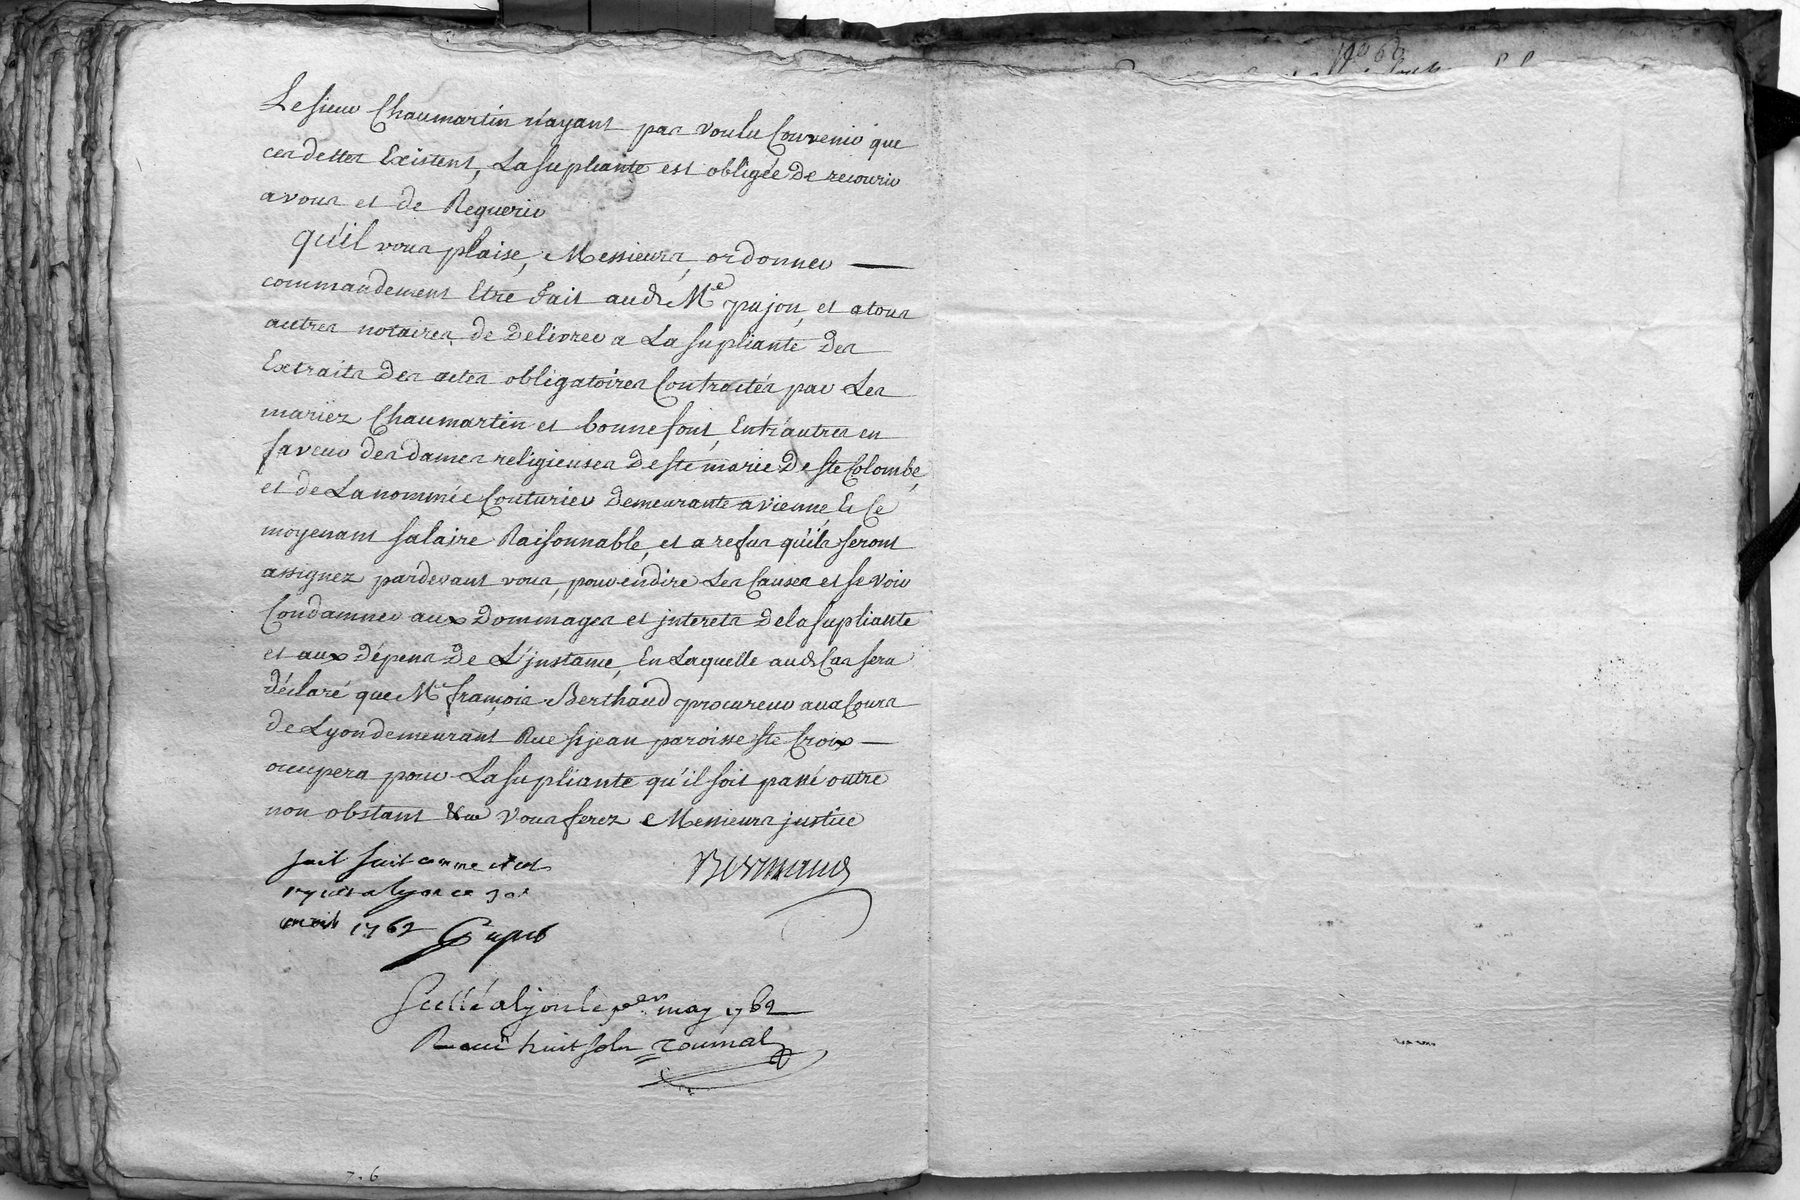 Le sieur Chaumartin n'ayant pas voulu Convenir que
ces dettes Existent, La supliante est obligée De recourir
a vous et de Requerir
qu'il vous plaise, Messieurs, ordonner
commandement Etre fait aud. Me pajon, et a tous
autres notaires, de Delivrer a La supliante Des
Extraits Des actes obligatoires Contractés par Les
mariez Chaumartin et bonnefont, Entr'autres en
faveur des dames religieuses De ste marie De ste Colombe,
et de La nommée Couturier Demeurante a vienne, Et Ce
moyenant salaire Raisonnable, et a refus qu'ils seront
assignez pardevant vous, pour en dire Les Causes et se voir
Condamner aux Dommages et jnterets De la supliante
et aux dépens De L'jnstance, En Laquelle aud. Cas sera
déclaré que Me françois Berthaud procureur aux Cours
de Lyon demeurant Rue st jean paroisse ste Croix
occupera pour La supliante qu'il soit passé outre
non obstant &ce Vous ferez Messieurs justice
soit fait comme est
a lyon ce 30e
avril 1762
Scellé a lyon le per may 1762
huit sols
7.6